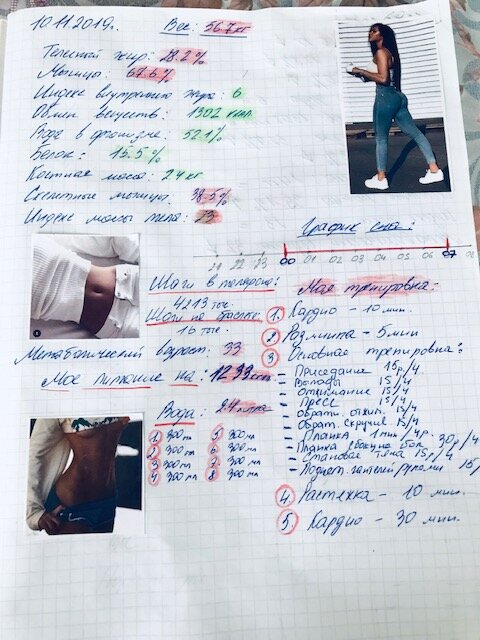 10.11.2019г. Вес: 56.7кг
Телесный жир: 28.2%
Мышцы: 67.6%
Индекс внутреннего жира: 6
Обмен веществ: 1302 ккал.
Вода в организме: 52.1%
Белок: 15.5%
Костная масса: 2.4 кг
Скелетные мышцы: 38.5%
Индекс массы тела: 23
График сна:
21 22 23 00 01 02 03 04 05 06 07 08
Шаги в телефоне:
4213 тыс.
Шаги на браслете:
16 тыс.
Метаболический возраст: 33
Мое питание на: 1233
Вода: 2.4 литра
1 300 мл 5 300 мл
2 300 мл 6 300 мл
3 300 мл 7 300 мл
4 300 мл 8 300 мл
Моя тренировка:
1. Кардио - 10 мин.
2 Разминка - 5 мин
3 Основная тренировка:
- Приседание 15р/4
- Выпады 15/4
- Отжимание 15/4
- Пресс 15/4
- Обратн. отжим. 15/4
- Обрат. скручив 15/4
- Планка 1 мин/4р.
- Планка бок 30р/4
- Становая тяга 15р/4
- Поднят. гантелей руками 15р
4. Растяжка - 10 мин.
5. Кардио - 30 мин.